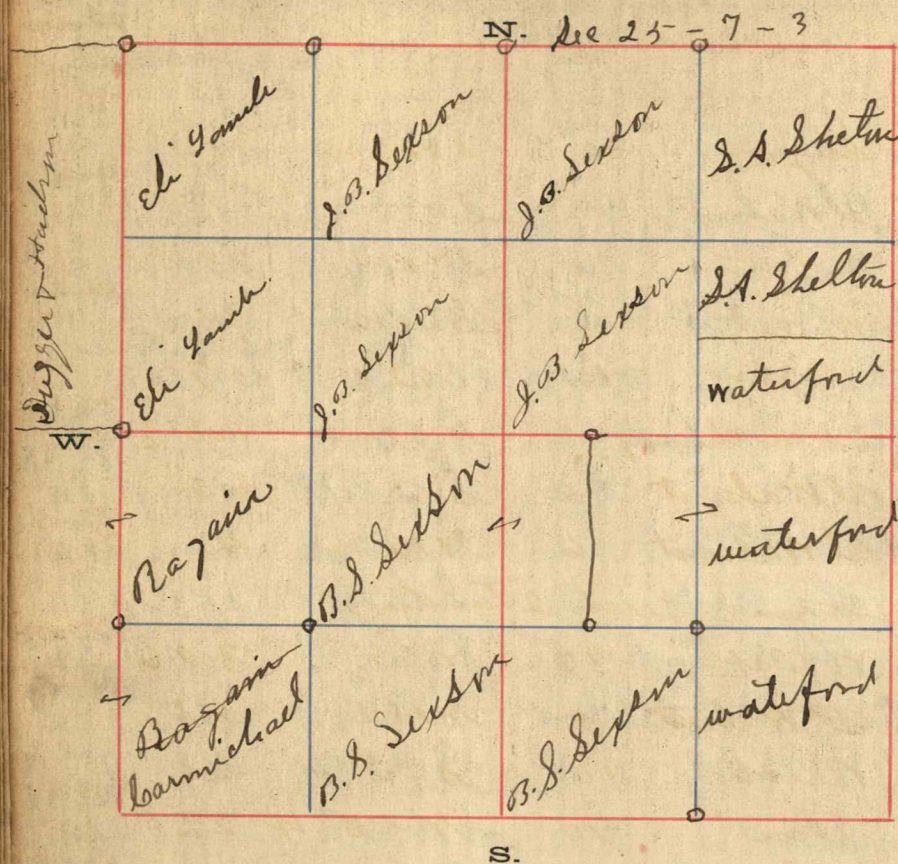 N. Sec 25 - 7 - 3
Eli Lamb
J.B. Sexson
J.B. Sexson
S.A. Shelton
Dugger & Hudson
Eli Lamb
J.B. Sexson
J.B Sexson
S.A. Shelton
waterford
W.
Ragain
B.S. Sexson
waterford
Ragain
Carmichael
B.S. Sexson
B.S. Sexson
wateford
S.